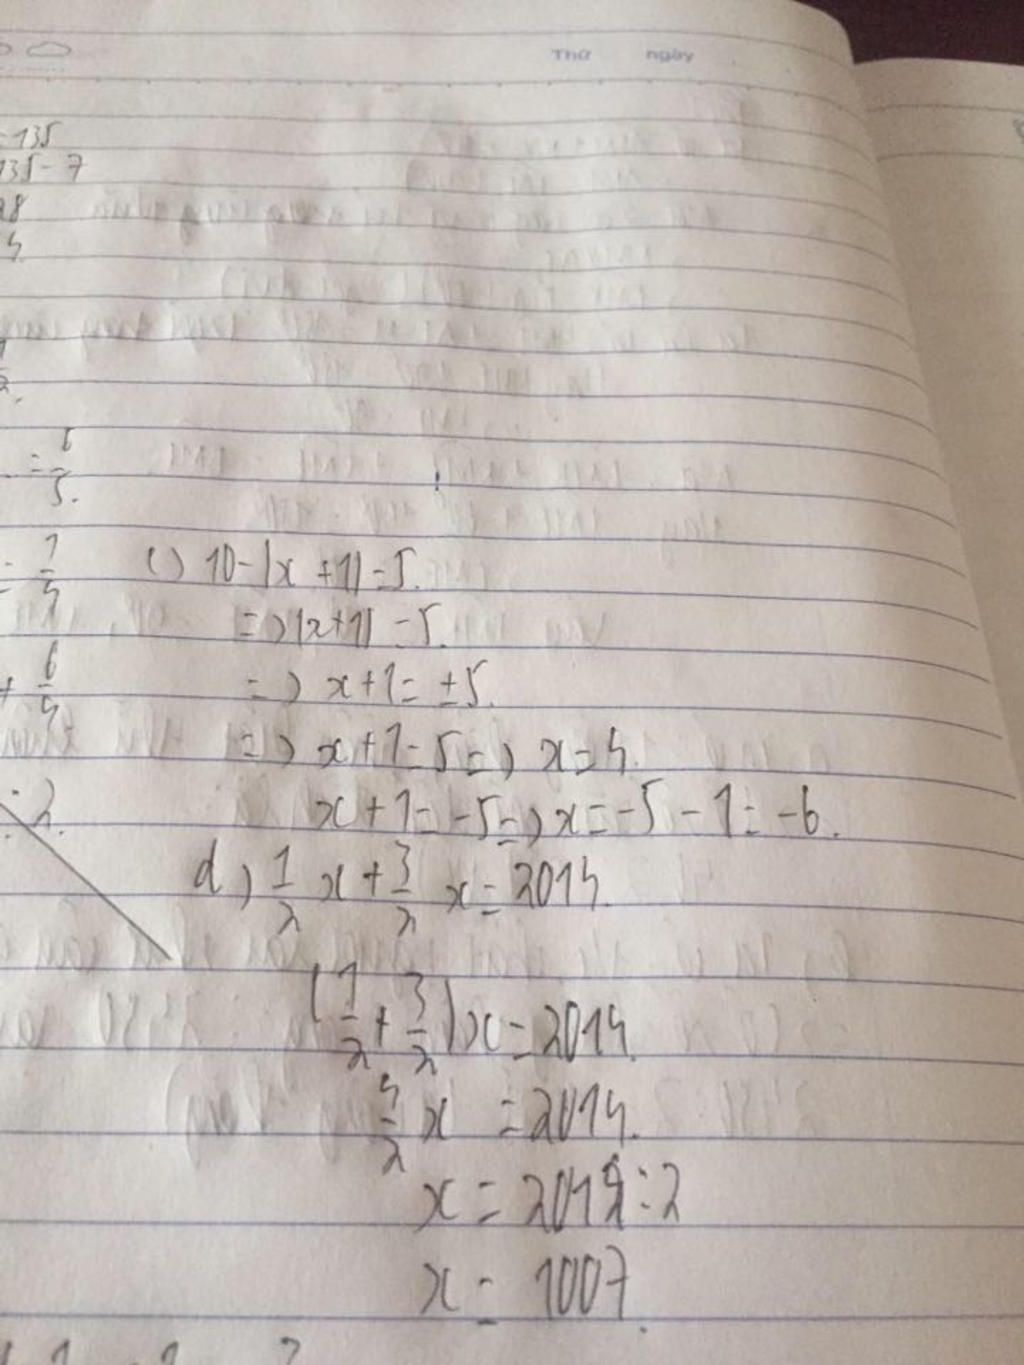 Thứ ngày
=135
135-7
28
4
= 6/5.
= 1/4
+ 6/4
: 2.
c) 10-|x+1|=5.
=>|x+1|=5.
=> x+1= ±5.
=> x+1=5=> x=4.
x+1=-5=>x=-5-1=-6.
d) 1/2 x+3/2 x=2014.
(1/2+3/2)x=2014.
4/2 x =2014.
x=2014:2
x= 1007.